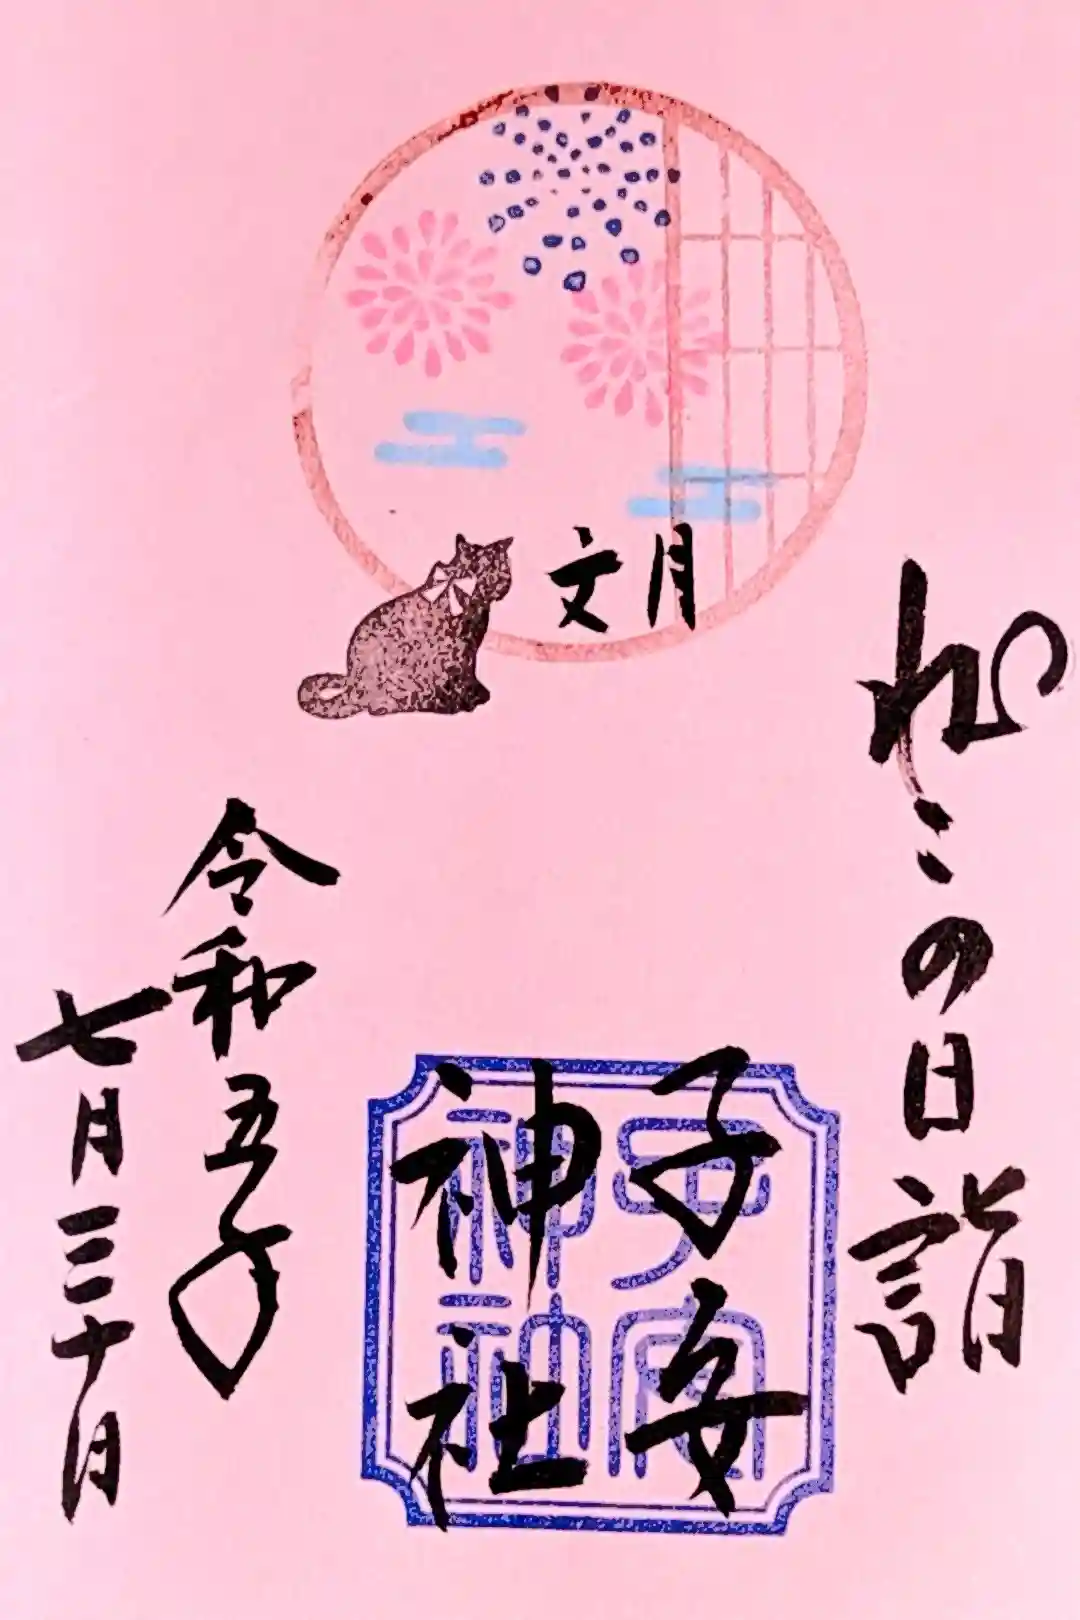 ねこの日詣
文月
子安
神社
子安
神社
令和五年
七月三十日